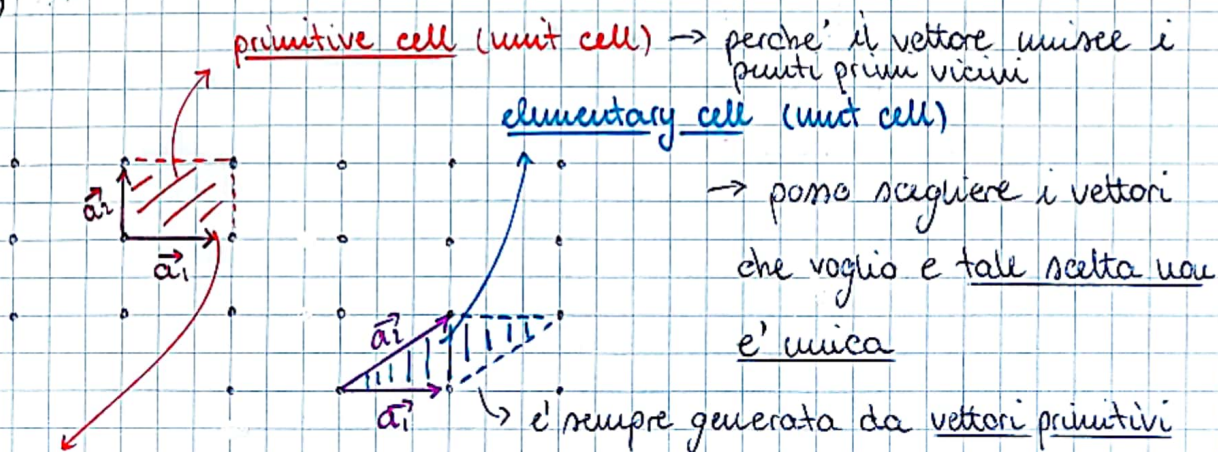 primitive cell (unit cell) → perche' il vettore unisce i
punti primi vicini
elementary cell (unit cell)
→ posso scegliere i vettori
che voglio e tale scelta non
e' unica
a₂
a₁
a₂
a₁
↳ e' sempre generata da vettori primitivi